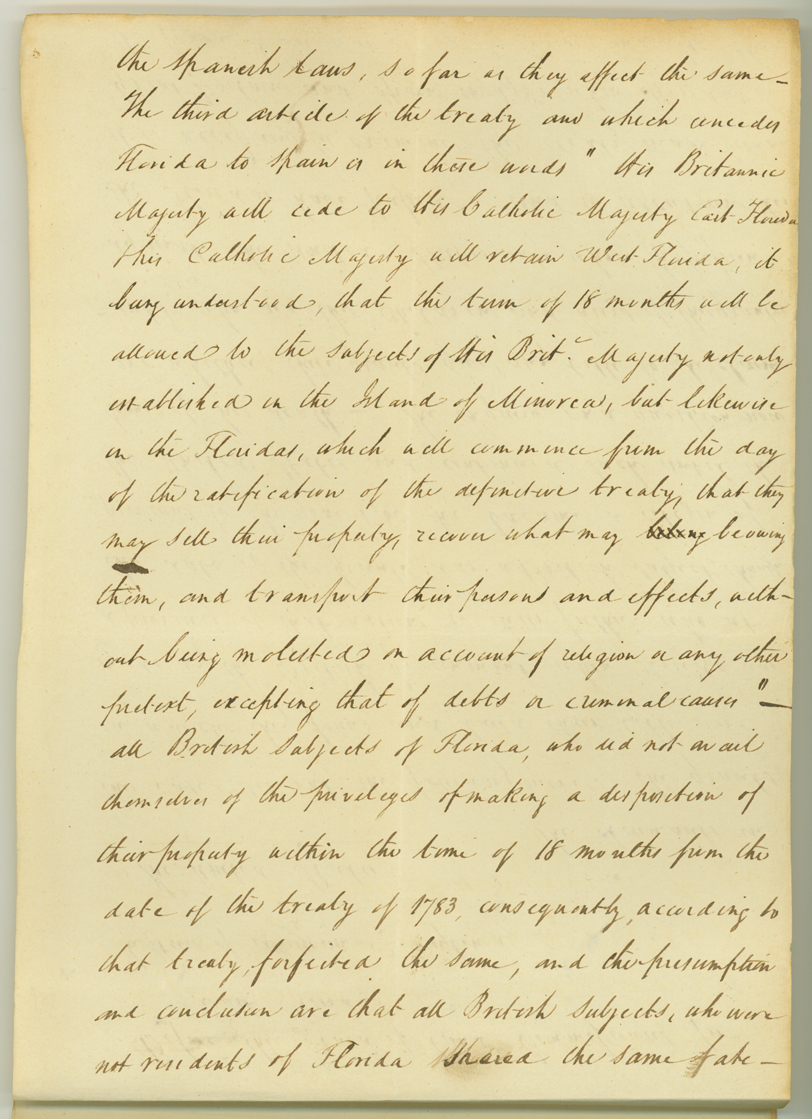 the Spanish Laws, so far as they affect the same—
The third article of the treaty and which concedes
Florida to Spain is in these words " His Britannic
Majesty will cede to His Catholic Majesty East Florida
& his Catholic Majesty will retain West Florida, it
being understood, that the term of 18 months will be
allowed to the subjects of His Brit.c Majesty not only
established in the Island of Minorca, but likewise
in the Floridas, which will commence from the day
of the ratification of the definitive treaty, that they
may sell their property, recover what may be owing
them, and transport their persons and effects, with-
out being molested on account of religion or any other
pretext, excepting that of debts or criminal causes "—
all British Subjects of Florida, who did not avail
themselves of the privileges of making a disposition of
their property within the time of 18 months from the
date of the treaty of 1783, consequently, according to
that treaty, forfeited the same, and the presumption
and conclusion are that all British Subjects, who were
not residents of Florida shared the same fate—